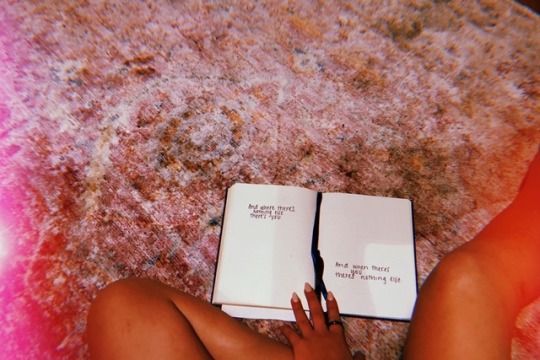 And where there's
nothing else
there's you
And when there's
you
there's nothing else